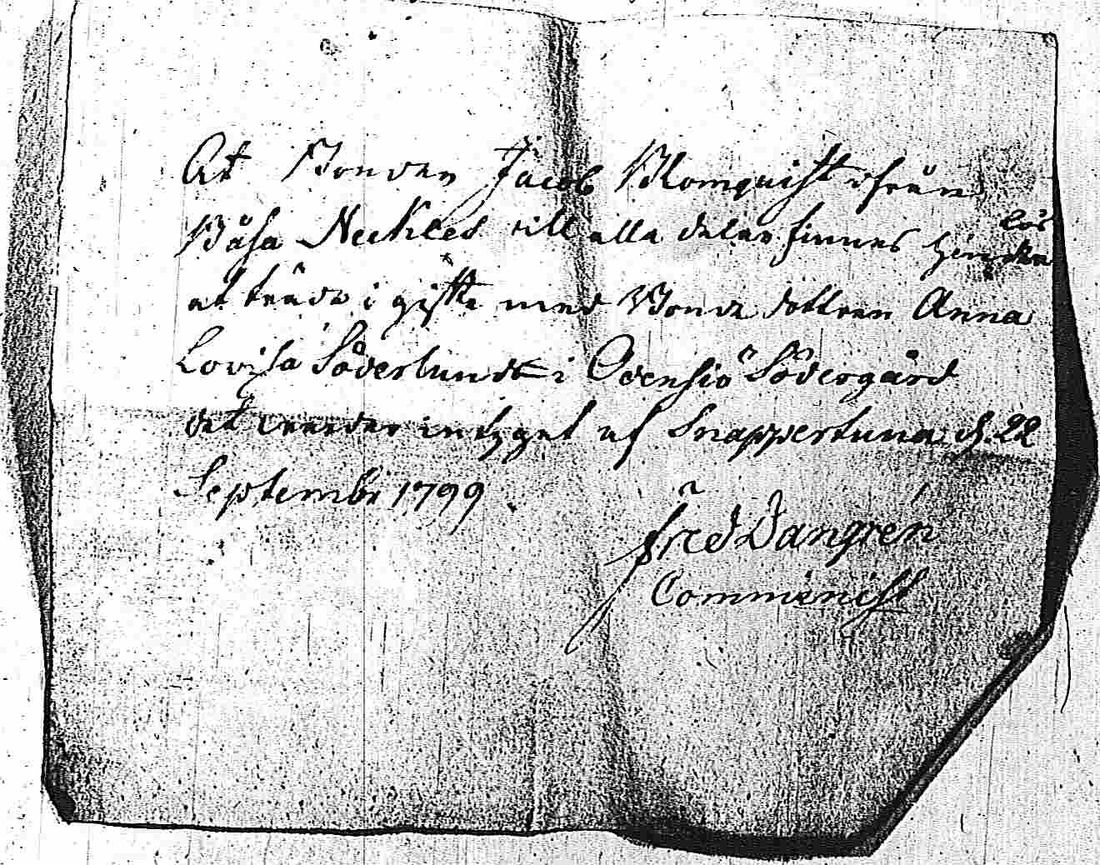 At Bonden Jacob Blomquist ifrån
Båsa Neckles till alla delar finnes hinder lös
at träda i gifte med Bonde dottren Anna
Lovisa Söderlund i Odensiö Södergård
det warder intyget af Snappertuna d. 22
Septembr 1799
Fred Wangrén
Comminist